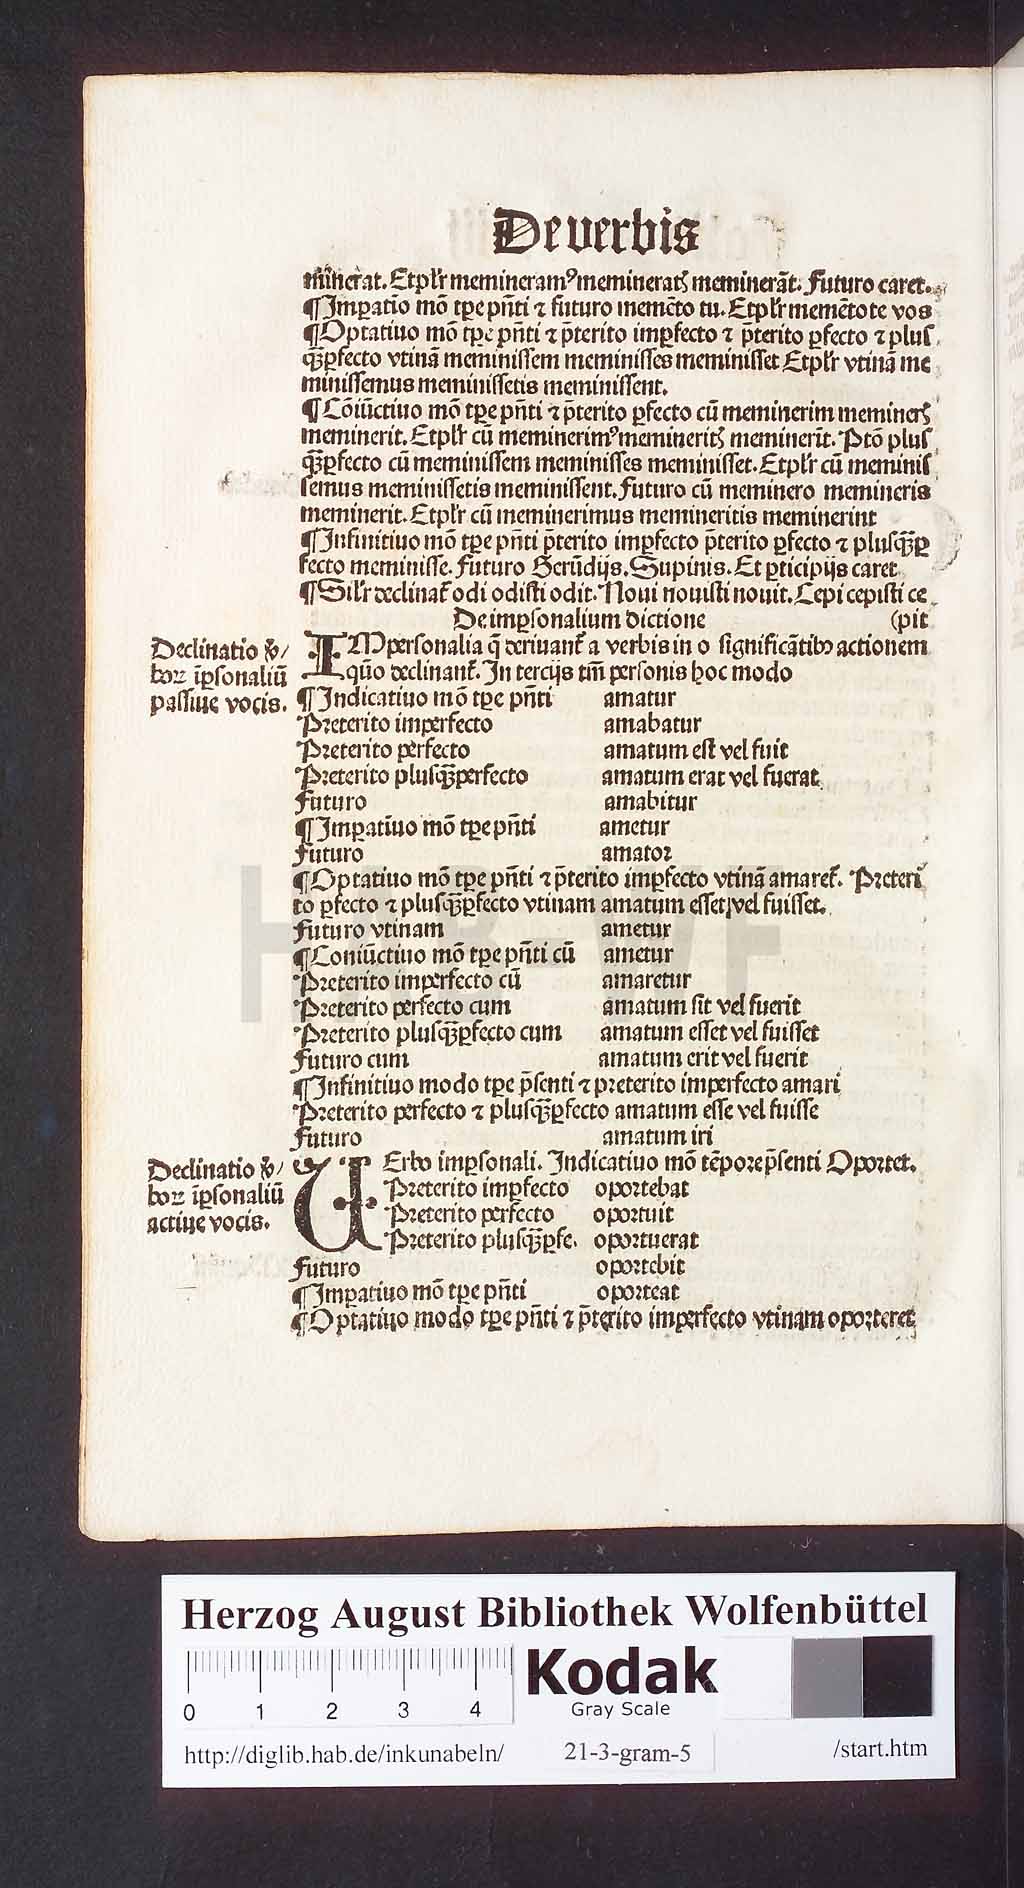 De verbis
minerat. Etpl'r memineramꝰ meminerat᷒ meminerāt. Futuro caret.
¶Imꝑatiō mō tꝑe pn̄ti ⁊ futuro memēto tu. Etpl'r memētote vos
¶Optatiuo mō tꝑe pn̄ti ⁊ p̄terito imꝑfecto ⁊ p̄terito ꝑfecto ⁊ pluſ
q̄ꝫꝑfecto vtinā meminiſſem meminiſſes meminiſſet Etpl'r vtinā me
miniſſemus meminiſſetis meminiſſent.
¶Cōiūctiuo mō tꝑe pn̄ti ⁊ p̄terito ꝑfecto cū meminerim meminer᷒
meminerit. Etpl'r cū meminerimꝰ meminerit᷒ meminerīt. Ptō pluſ
q̄ꝫꝑfecto cū meminiſſem meminiſſes meminiſſet. Etpl'r cū meminiſ
ſemus meminiſſetis meminiſſent. Futuro cū meminero memineris
meminerit. Etpl'r cū meminerimus memineritis meminerint
¶Infinitiuo mō tꝑe pn̄ti p̄terito imꝑfecto p̄terito ꝑfecto ⁊ pluſq̄ꝫꝑ
fecto meminiſſe. Futuro Gerūdijs. Supinis. Et ꝑticipijs caret
¶Sil'r declinat᷑ odi odiſti odit. Noui nouiſti nouit. Cepi cepiſti ce
De imꝑſonalium dictione (pit
IMperſonalia q̄ deriuant᷑ a verbis in o ſignificātibꝫ actionem
quō declinant᷑. In tercijs tm̄ perſonis hoc modo
Declinatio ꝟ/
boꝝ īꝑſonaliū
paſſiue vocis.
¶Indicatiuo mō tꝑe pn̄ti amatur
Preterito imperfecto amabatur
Preterito perfecto amatum eſt vel fuit
Preterito pluſq̄ꝫperfecto amatum erat vel fuerat
Futuro amabitur
¶Imꝑatiuo mō tꝑe pn̄ti ametur
Futuro amatoꝛ
¶Optatiuo mō tꝑe pn̄ti ⁊ p̄terito imꝑfecto vtinā amaret᷑. Preteri
to ꝑfecto ⁊ pluſq̄ꝫꝑfecto vtinam amatum eſſet vel fuiſſet.
Futuro vtinam ametur
¶Coniūctiuo mō tꝑe pn̄ti cū ametur
Preterito imperfecto cū amaretur
Preterito perfecto cum amatum ſit vel fuerit
Preterito pluſq̄ꝫꝑfecto cum amatum eſſet vel fuiſſet
Futuro cum amatum erit vel fuerit
¶Infinitiuo modo tꝑe p̄ſenti ⁊ preterito imperfecto amari
Preterito perfecto ⁊ pluſq̄ꝫꝑfecto amatum eſſe vel fuiſſe
Futuro amatum iri
Declinatio ꝟ/
boꝝ īꝑſonaliū
actiue vocis.
VErbo imꝑſonali. Indicatiuo mō tēpoꝛe p̄ſenti Opoꝛtet.
Preterito imꝑfecto opoꝛtebat
Preterito perfecto opoꝛtuit
Preterito pluſq̄ꝫꝑfe. opoꝛtuerat
Futuro opoꝛtebit
¶Imꝑatiuo mō tꝑe pn̄ti opoꝛteat
¶Optatiuo modo tꝑe pn̄ti ⁊ p̄terito imperfecto vtinam opoꝛteret
HAB-WF
Herzog August Bibliothek Wolfenbüttel
0 1 2 3 4
Kodak
Gray Scale
http://diglib.hab.de/inkunabeln/ 21-3-gram-5 /start.htm